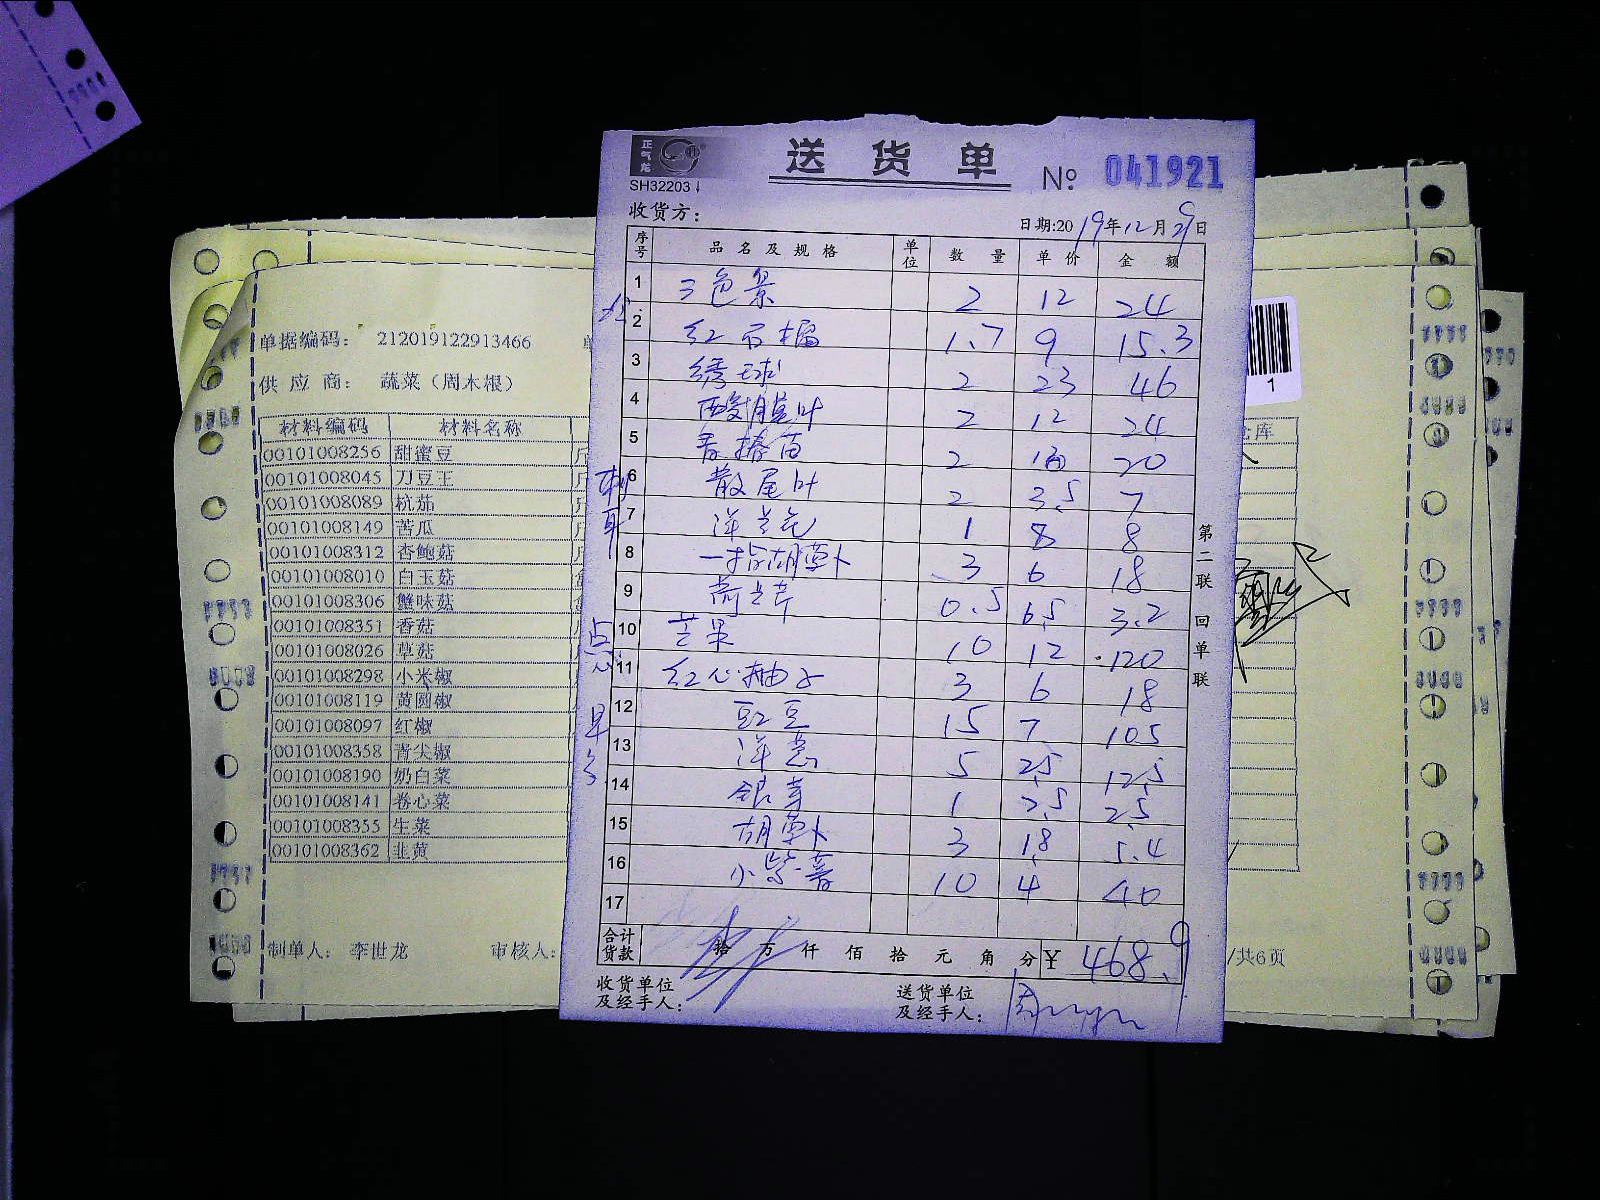 正气龙
送货单
№ 041921
SH32203
收货方：
日期:2019年12月29日
序号 品名及规格 单位 数量 单价 金额
1 三色景 2 12 24
2 红石榴 1.7 9 15.3
3 绣球 2 23 46
4 酸膜叶 2 12 24
5 香椿苗 2 10 20
6 散尾叶 2 3.5 7
7 洋兰花 1 8 8
8 一指胡萝卜 3 6 18
9 荷兰芹 0.5 6.5 3.2
10 芒果 10 12 120
11 红心柚子 3 6 18
12 豇豆 15 7 105
13 洋葱 5 2.5 12.5
14 银芽 1 2.5 2.5
15 胡萝卜 3 1.8 5.4
16 小紫薯 10 4 40
17
合计货款 拾万仟佰拾元角分 ¥ 468.9
收货单位及经手人：
送货单位及经手人：
第二联 回单联
刺身
点心
单据编码： 212019122913466
供应商： 蔬菜（周木根）
材料编码 材料名称
00101008256 甜蜜豆
00101008045 刀豆王
00101008089 杭茄
00101008149 苦瓜
00101008312 杏鲍菇
00101008010 白玉菇
00101008306 蟹味菇
00101008351 香菇
00101008026 草菇
00101008298 小米椒
00101008119 黄圆椒
00101008097 红椒
00101008358 青尖椒
00101008190 奶白菜
00101008141 卷心菜
00101008355 生菜
00101008362 韭黄
制单人： 李世龙 审核人:
仓库
1
/共6页